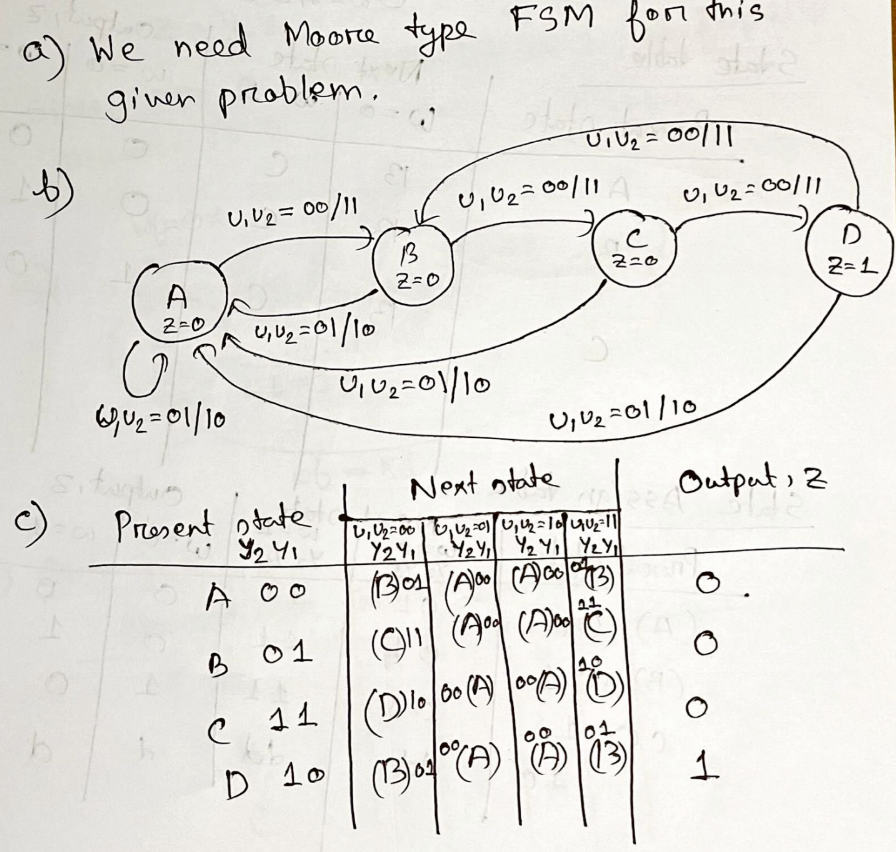 a) We need Moore type FSM for this
given problem.
b)
U₁U₂ = 00/11
U₁U₂ = 00/11
U₁U₂ = 00/11
U₁U₂ = 00/11
A
Z=0
B
Z=0
C
Z=0
D
Z=1
U₁U₂=01/10
U₁U₂=01/10
U₁U₂=01/10
U₁U₂=01/10
c) Present state Next state Output, Z
Y₂Y₁ U₁U₂=00 U₁U₂=01 U₁U₂=10 U₁U₂=11
Y₂Y₁ Y₂Y₁ Y₂Y₁ Y₂Y₁
A 00 (B)01 (A)00 (A)00 01(B) 0
B 01 (C)11 (A)00 (A)00 11(C) 0
C 11 (D)10 00(A) 00(A) 10(D) 0
D 10 (B)01 00(A) 00(A) 01(B) 1